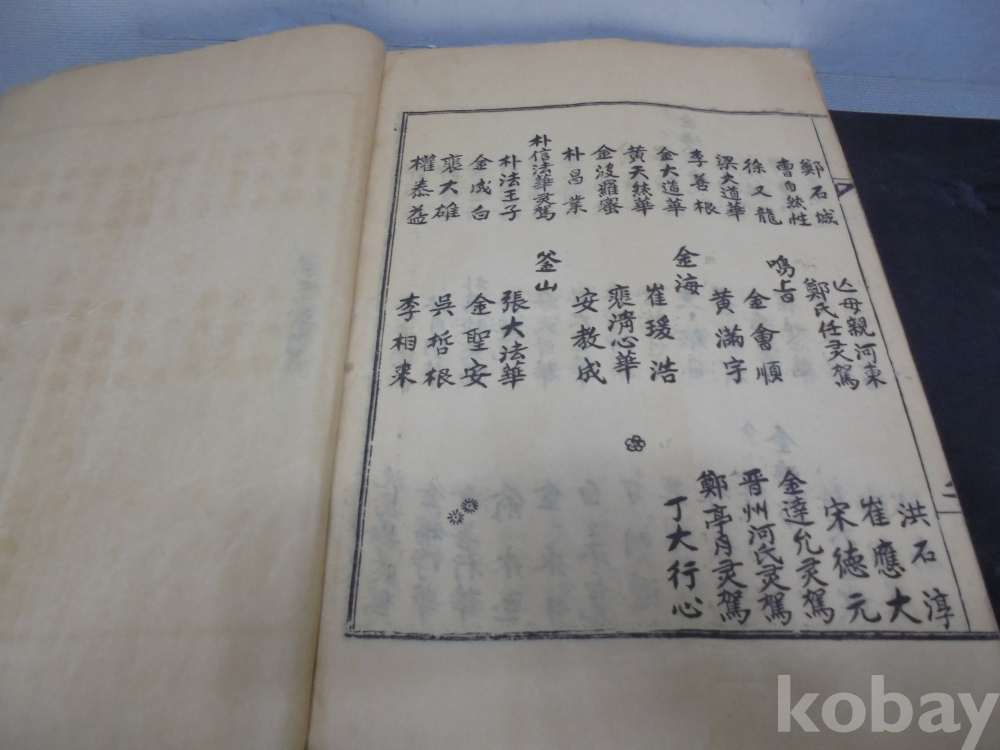 鄭石城
曹自然性
徐又龍
梁大道華
李善根
金大道華
黃天然華
金波羅蜜
朴昌業
朴信法華灵駕
朴法王子
金成白
裵大雄
權泰益
亡母親河東
鄭氏任灵駕
鳴旨
金會順
黃滿字
金海
崔瑗浩
裵淸心華
安教成
釜山
張大法華
金聖安
吳哲根
李相來
洪石淳
崔應大
宋德元
金達允灵駕
晋州河氏灵駕
鄭亭月灵駕
丁大行心
二
kobay